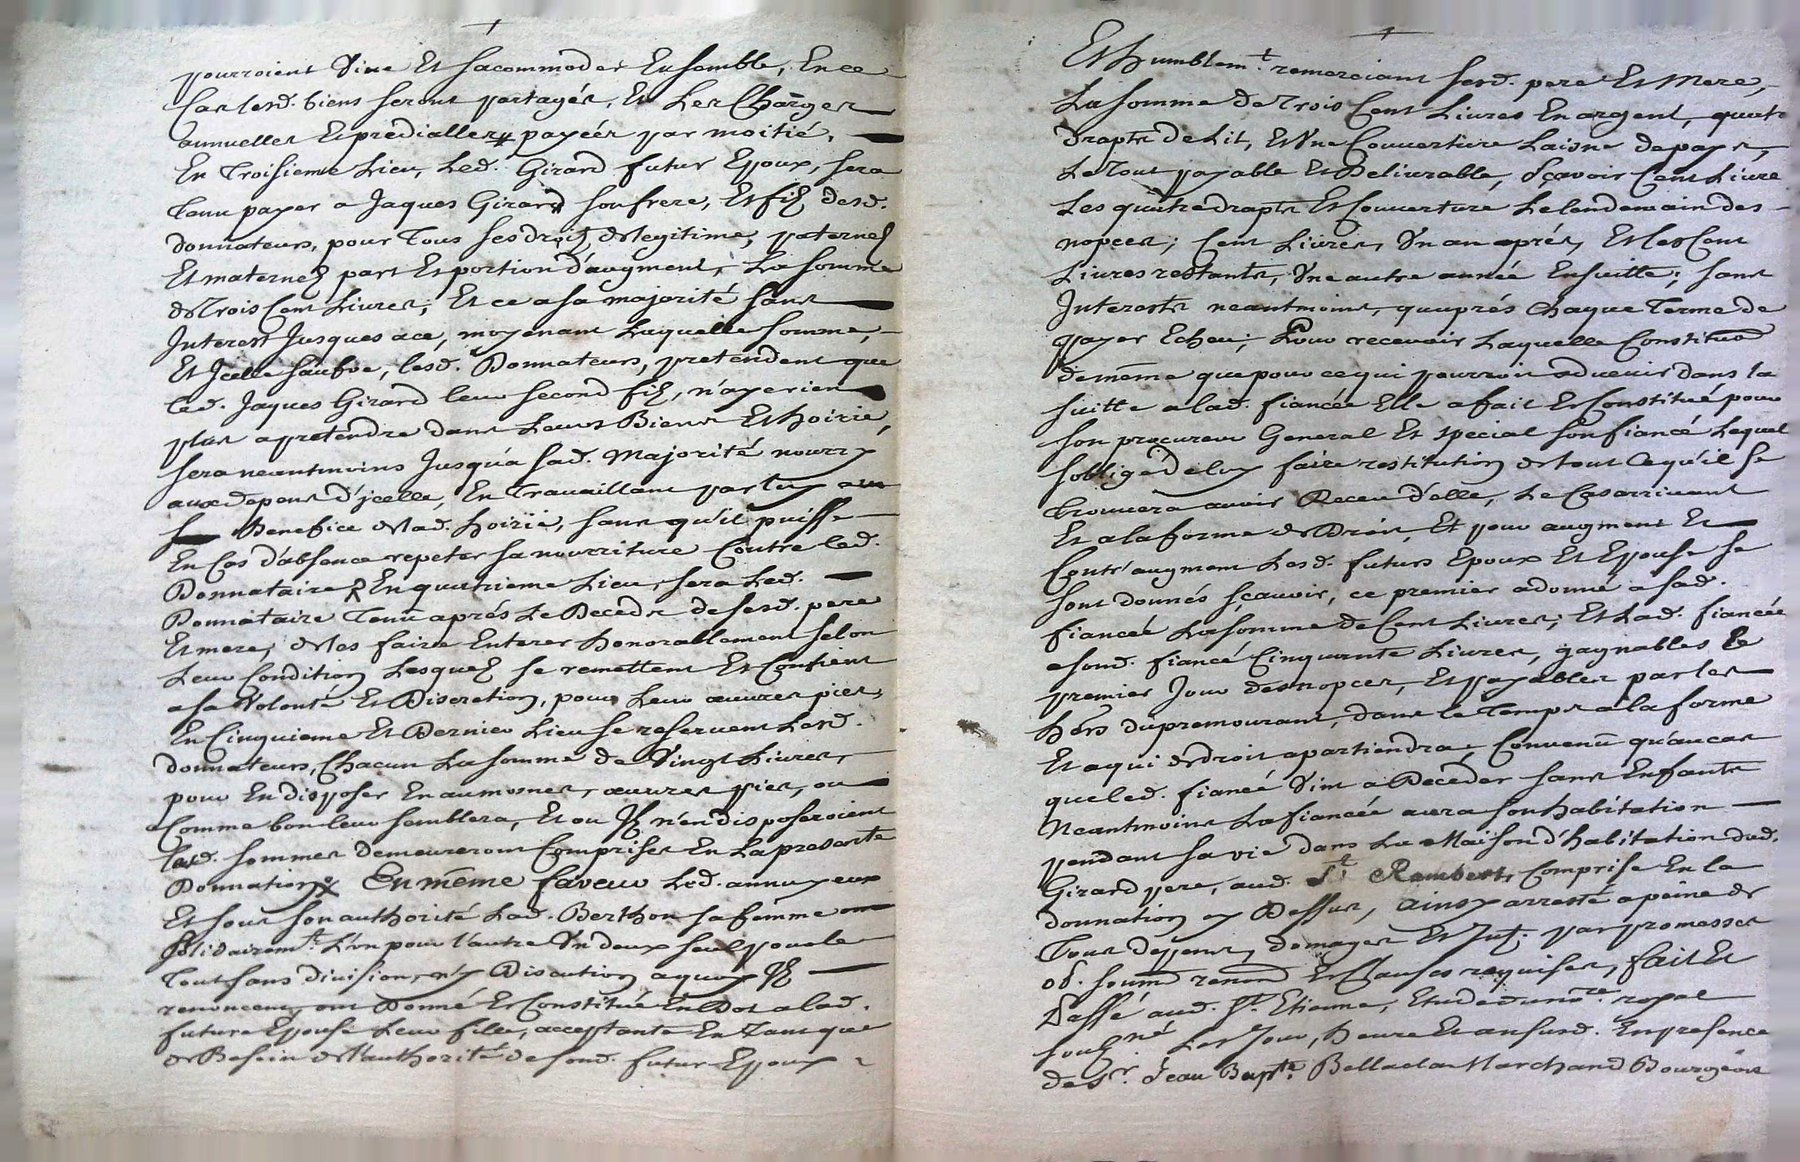 pourroient Vivre Et sacommoder Ensemble, En ce
Cas lesd. biens seront partagés, Et Les Charges
annuelles Et prédialles payéés par moitié,
En Troisieme Lieu, Led. Girard futur Epoux, sera
Tenu payer a Jaques Girard son frere, Et fils desd.
donnateurs, pour Tous ses droits de legitime, paternel
Et maternel part Et portion d'augment, La somme
de Trois Cent Livres; Et ce a sa majorité sans
Interest Jusques a ce, moyenant Laquelle somme,
Et Jcelle saufve, lesd. Donnateurs, pretendent que
led. Jaques Girard leur second fils, n'aye rien
plus a pretendre dans Leurs Biens Et hoirie,
sera neantmoins Jusqu'a sad. Majorité nourry
aux depens d'jcelle, En Travaillant par luy au
Benefice de lad. hoirie, sans qu'il puisse
En Cas d'absence repeter sa nourriture Contre led.
Donnataire, En quatrieme Lieu, sera Led.
Donnataire Tenu aprés Le Decedz de sesd. pere
Et mere, de les faire Enterer honorablement selon
Leur Condition Lesquels se remettent Et Confient
a sa Volonté Et Discretion, pour Leur œuvres pies,
En Cinquieme Et Dernier Lieu se reservent Lesd.
donnateurs, Chacun La somme de Vingt Livres,
pour En disposer En aumosnes, œuvres pies, ou
Comme bon leur semblera, Et ou Jls n'en disposeroient
lesd. sommes demeureront Comprises En La presente
Donnation En même faveur Led. annuyeux
Et sous son authorité Lad. Berthon sa femme
solidairemt. L'un pour l'autre Un deux seul pour le
Tout sans division, n'y Discution a quoy Jls
renoncent, ont Donné Et Constitué En Dot a lad.
future Epouse Leur fille, acceptante En Tant que
de Besoin de l'authorité de sond. futur Epoux
Et humblemt. remerciant sesd. pere Et Mere,
La somme de Trois Cent Livres En argent, quatre
drapts de Lit, Et Une Couverture Laisne de pays,
Le Tout payable Et Delivrable, Sçavoir Cent Livres
Les quatre drapts Et Couverture Le lendemain des
nopces; Cent Livres, Un an aprés, Et les Cent
Livres restants, Une autre année Ensuitte; sans
Interests neantmoins, qu'aprés Chaque Terme de
payer Echeu; Pour recevoir Laquelle Constituon
de même que pour ce qui pourroit advenir dans la
suitte a lad. fiancée Elle a fait Et Constitué pour
son procureur General Et special son fiancé Lequel
s'oblige de luy faire restitution de tout Ce qu'il se
trouvera avoir Receu d'elle, Le Cas arrivant
Et a la forme de Droit, Et pour augment Et
Contr'augment Lesd. futurs Epoux Et Epouse se
sont donnés sçavoir, ce premier a donné a sad.
fiancée La somme de Cent Livres; Et Lad. fiancée
a sond. fiancé Cinquante Livres, gagnables le
premier Jour des nopces, Et payables par les
hers du premourant, dans le Temps a la forme
Et a qui de droit apartiendra, Convenu qu'au cas
que led. fiancé Vint a Decéder sans Enfants
Neantmoins La fiancée aura son habitation
pendant sa vie dans La Maison d'habitation dud.
Girard pere, aud. St. Rambert, Comprise En la
donnation cy Dessus, ainsy arresté a peine de
Tous depens, domages Et Int. par promesses
ob. soum renon Et Clauses requises, fait Et
Passé aud. St. Etienne, Etude du nore. royal
sousné. Les Jour, heure Et an susd. En presence
de Sr. Jean Bapte. Marchand Bourgeois